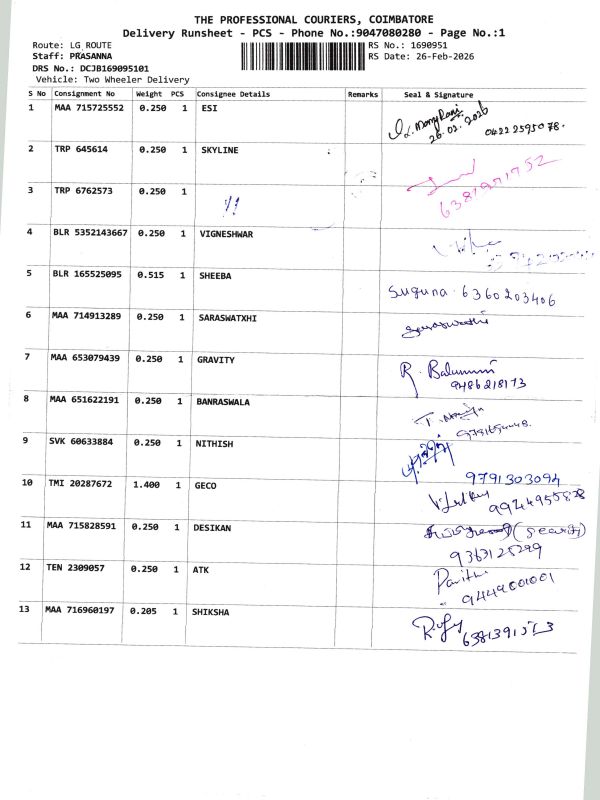 THE PROFESSIONAL COURIERS, COIMBATORE
Delivery Runsheet - PCS - Phone No.:9047080280 - Page No.:1
Route: LG ROUTE RS No.: 1690951
Staff: PRASANNA RS Date: 26-Feb-2026
DRS No.: DCJB169095101
Vehicle: Two Wheeler Delivery
S No Consignment No Weight PCS Consignee Details Remarks Seal & Signature
1 MAA 715725552 0.250 1 ESI
26.02.2026 0422 2595078.
2 TRP 645614 0.250 1 SKYLINE
6381971752
3 TRP 6762573 0.250 1
4 BLR 5352143667 0.250 1 VIGNESHWAR
5 BLR 165525095 0.515 1 SHEEBA Suguna. 6360203406
6 MAA 714913289 0.250 1 SARASWATXHI Saraswathi
7 MAA 653079439 0.250 1 GRAVITY
9486218173
8 MAA 651622191 0.250 1 BANRASWALA
9 SVK 60633884 0.250 1 NITHISH
9791303094
10 TMI 20287672 1.400 1 GECO
9944955828
11 MAA 715828591 0.250 1 DESIKAN
9363125299
12 TEN 2309057 0.250 1 ATK
9449001001
13 MAA 716960197 0.205 1 SHIKSHA